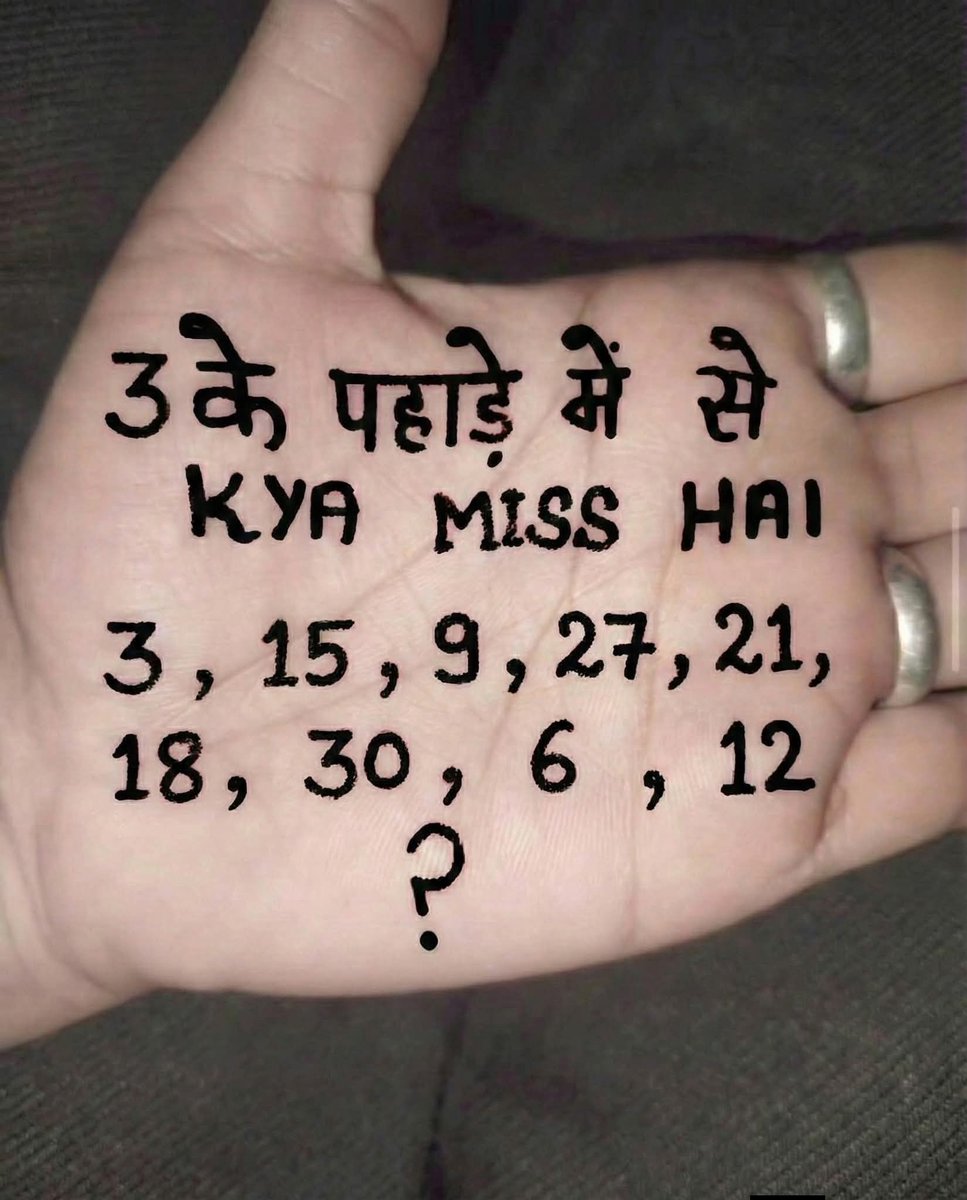 3 के पहाड़े में से
KYA MISS HAI
3, 15, 9, 27, 21,
18, 30, 6, 12
?